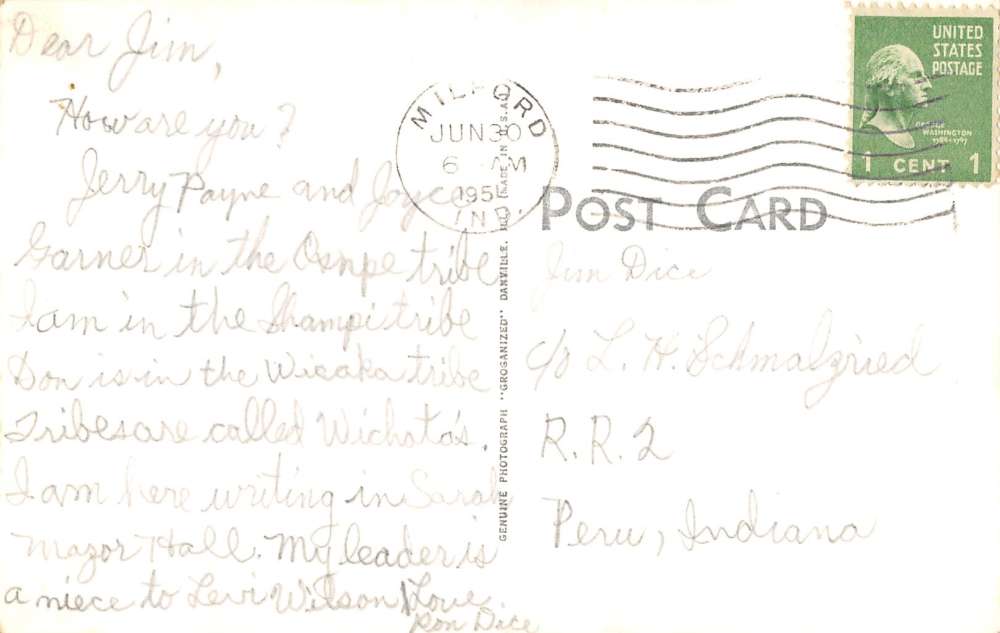 Dear Jim,
How are you?
Jerry Payne and Joyce
Garner in the Osnpe tribe
I am in the Shampi tribe
Don is in the Wicaka tribe
Tribes are called Wichota's.
I am here writing in Sarah
Mazor Hall. My leader is
a niece to Levi Wilson Love
Ron Dice
MILFORD
JUN 30
6 AM
1951
IND.
GENUINE PHOTOGRAPH "GROGANIZED" DANVILLE, ILL. (MADE IN U.S.A.)
UNITED
STATES
POSTAGE
GEORGE
WASHINGTON
1789-1797
1 CENT 1
POST CARD
Jim Dice
c/o L. H. Schmalzried
R.R. 2
Peru, Indiana